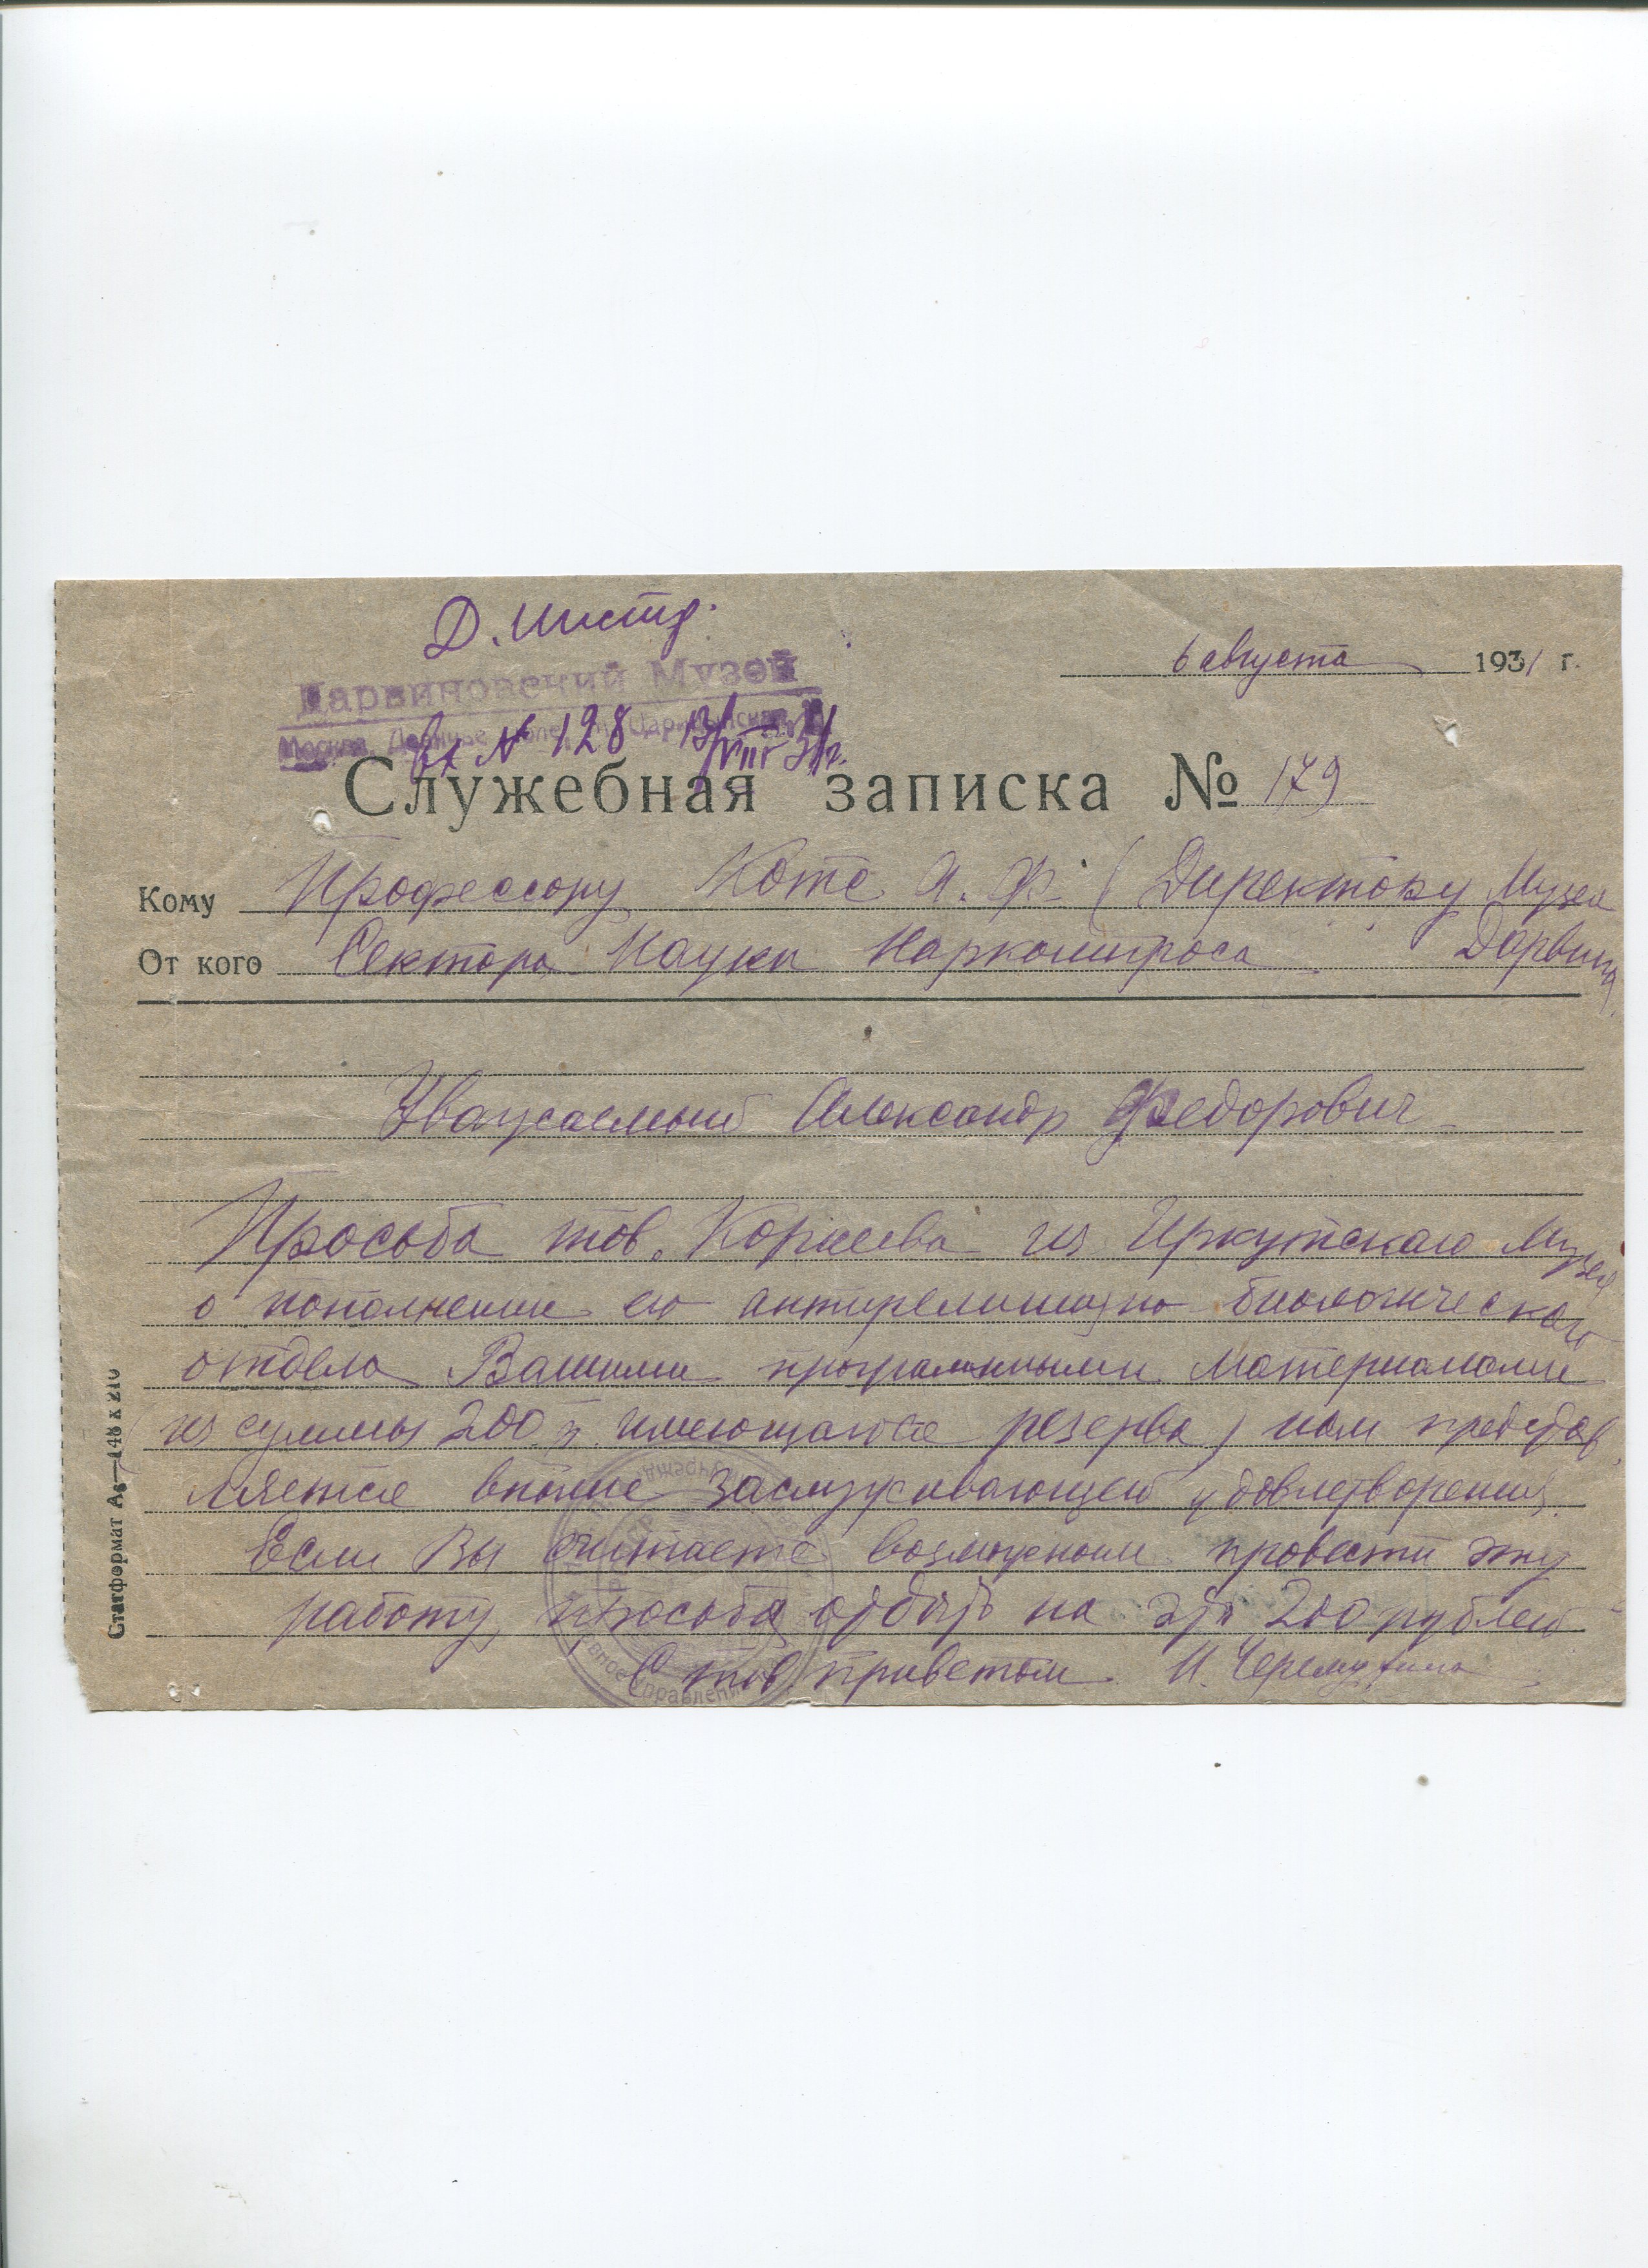 Д. Инстр.
Дарвиновский Музей
Москва, Девичье поле, Царицынская
Вх № 128 13/VIII 31г.
6 августа 1931 г.
Служебная записка № 179
Кому Профессору Котс А. Ф. (Директору Музея
Дарвина)
От кого Сектора Науки Наркомпроса
Уважаемый Александр Федорович
Просьба тов. из Иркутского Музея
о пополнении его антирелигиозно биологического
отдела Вашими программными материалами
из суммы 200 р. имеющагося резерва) нам представ
ляется вполне заслуживающей удовлетворения.
Если Вы считаете возможным провести эту
работу, просьба на это 200 рублей
С тов. приветом. И. Черемухина
Статформат А5—148 х 210